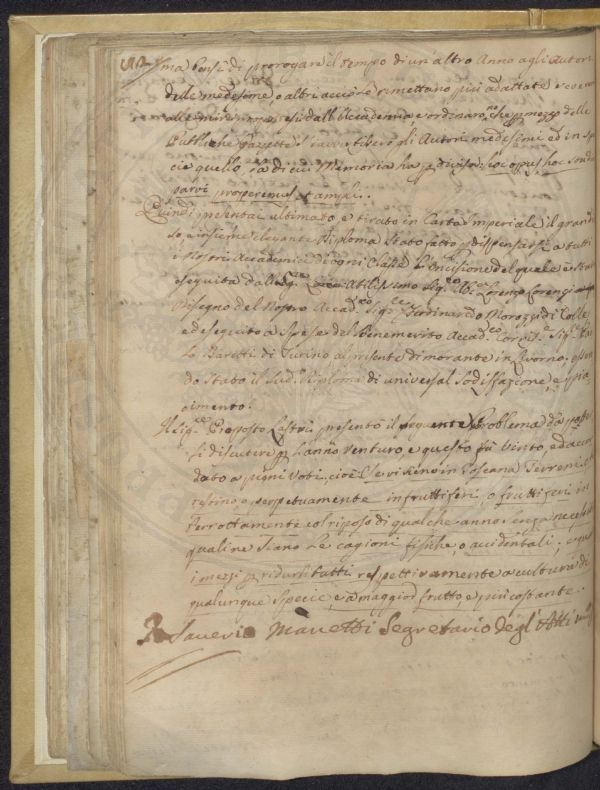 ma bensì di prorogare il tempo di un'altro Anno agli Autori
delle medesime, o altri acciò le rimettano più adattate
alle mire dall'Accademia, e ordinarono, che p mezzo delle
Pubbliche gazzette si avvertissero gli Autori medesimi ed in spe
cie quello, la di cui Memoria ha p divisa: hoc opus, hoc studium
parvi properemus, et ampli.
Quindi presentai ultimato, e tirato in Carta Imperiale il grand
e insieme elegante Diploma stato fatto p dispensarsi a tutti
i Nostri Accademici di ogni Classe. L'Incisione del quale è stata
eseguita dall' Abilissimo Sig.re Lorenzo Lorenzi
Disegno del Nostro Accad.co Sig.re Ferdinando Morozzi di Colle
ed eseguito a Spese del Benemerito Accad.co Corrisp.e Sig.re
Lo Baretti di Turino al presente dimorante in Livorno. essen
do Stato il Sud.o Diploma di universal Sodisfazione, e pia
cimento.
Il Sig.re Proposto Lastri presentò il seguente Problema da potersi
discutere p l'anno venturo, e questo fu vinto, ed accor
dato a pieni Voti, cioè Se vi sieno in Toscana Terreni
perpetuamente infruttiferi, o fruttiferi in
terrottamente col riposo di qualche anno senza necessità
quali ne siano le cagioni fisiche, o accidentali; e quali
i mezzi p ridurli tutti respettivamente a cultura di
qualunque Specie, e a maggior frutto e più costante.
Saverio Manetti Segretario degl'Atti